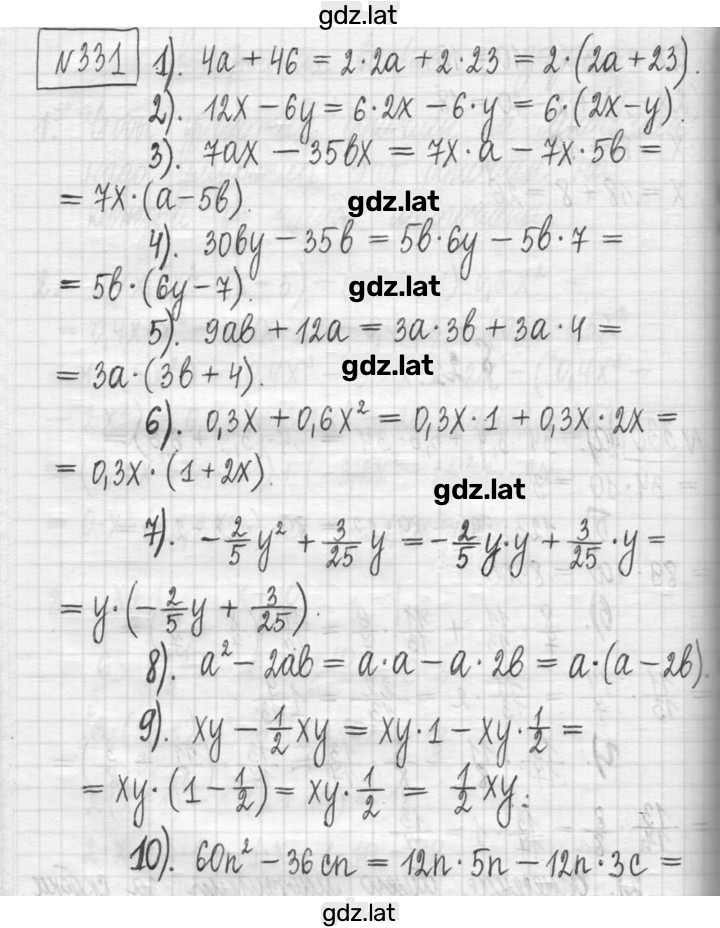 gdz.lat
№331 1). 4a + 46 = 2·2a + 2·23 = 2·(2a+23).
2). 12x − 6y = 6·2x − 6·y = 6·(2x−y).
3). 7ax − 35bx = 7x·a − 7x·5b =
= 7x·(a−5b). gdz.lat
4). 30by − 35b = 5b·6y − 5b·7 =
= 5b·(6y−7). gdz.lat
5). 9ab + 12a = 3a·3b + 3a·4 =
= 3a·(3b+4). gdz.lat
6). 0,3x + 0,6x² = 0,3x·1 + 0,3x·2x =
= 0,3x·(1+2x).
gdz.lat
7). −2/5 y² + 3/25 y = −2/5 y·y + 3/25·y =
= y·(−2/5 y + 3/25).
8). a² − 2ab = a·a − a·2b = a·(a−2b).
9). xy − 1/2 xy = xy·1 − xy·1/2 =
= xy·(1 − 1/2) = xy·1/2 = 1/2 xy.
10). 60n² − 36cn = 12n·5n − 12n·3c =
gdz.lat